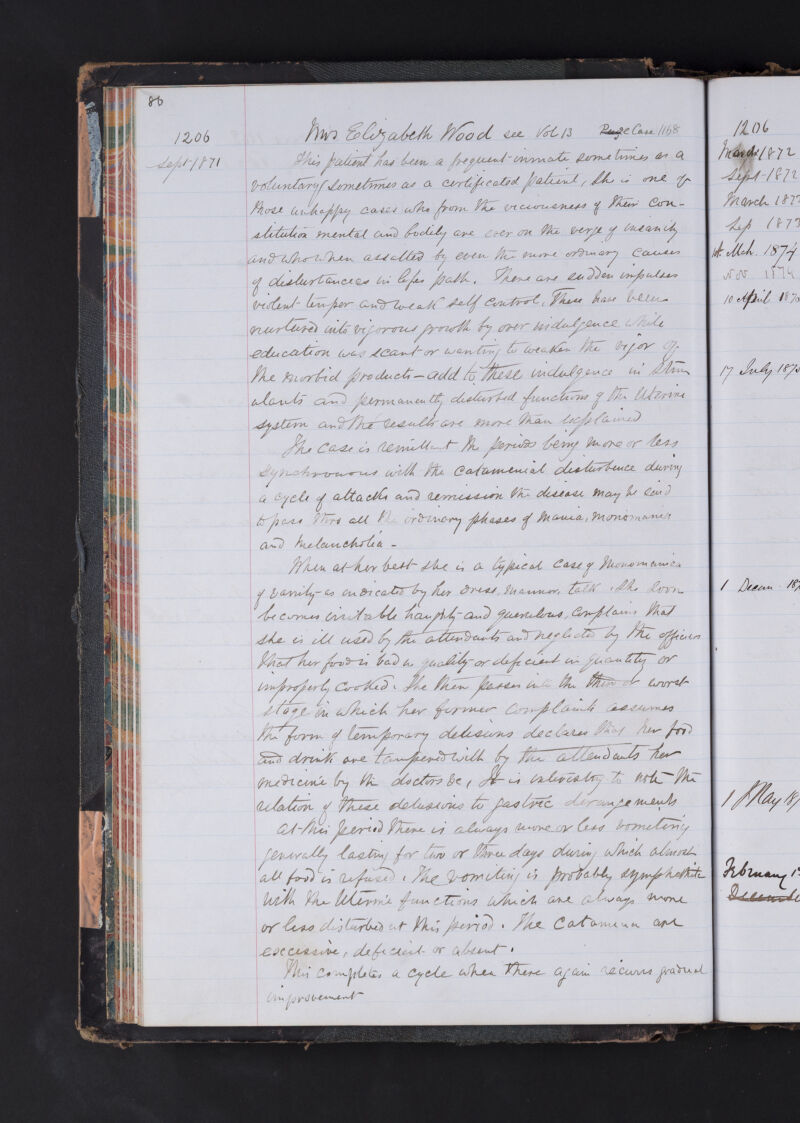 86
1206 Mrs Elizabeth Wood see Vol 13 Page Case 1168
Sept 1871 This patient has been a frequent inmate sometimes as a
voluntary sometimes as a certificated patient, She is one of
those unhappy cases who from the viciousness of their con-
stitution mental and bodily are ever on the verge of insanity
and who when assalted by even the more ordinary causes
of disturbances in lifes path. There are sudden impulses
violent temper and weak self control, These have been
nurtured into vigorous growth by over indulgence while
education was scant or wanting to weaken the vigor of
the morbid products – add to these indulgence in stim
ulants and permanently disturbed functions of the Uterine
system and the results are more than explained
The case is remittent the periods being more or less
synchronous with the catamenial disturbence during
a cycle of attacks and remission the disease may be said
to pass thro all the ordinary phases of Mania, monomania
and Melancholia –
When at her best she is a typical case of Monomania
of vanity as indicated by her dress, manner, talk. She soon
becomes irritable haughty and querulous, complains that
she is ill used by the attendants and neglected by the officers
that her food is bad in quality or deficient in quantity or
improperly cooked. She then passes into the worst
stage in which her former complaints assumes
the form of temporary delusions declares that her food
and drink are tampered with by the attendants her
medicine by the doctors &c, It is interesting to note the
relation of these delusions to gastric derangements
At this period there is always more or less vomiting
generally lasting for two or three days during which almost
all food is refused. The vomiting is probably sympathetic
with the Uterine functions which are always more
or less disturbed at this period. The catamenia are
excessive, deficient or absent.
This completes a cycle when there again recurs gradual
improvement
1206
March 1872
Sept 1872
March 187
Sep 187
Mch. 1874
Nov 1874
10 April 187
17 July 187
1 Decem 18
1 May 18
February 1